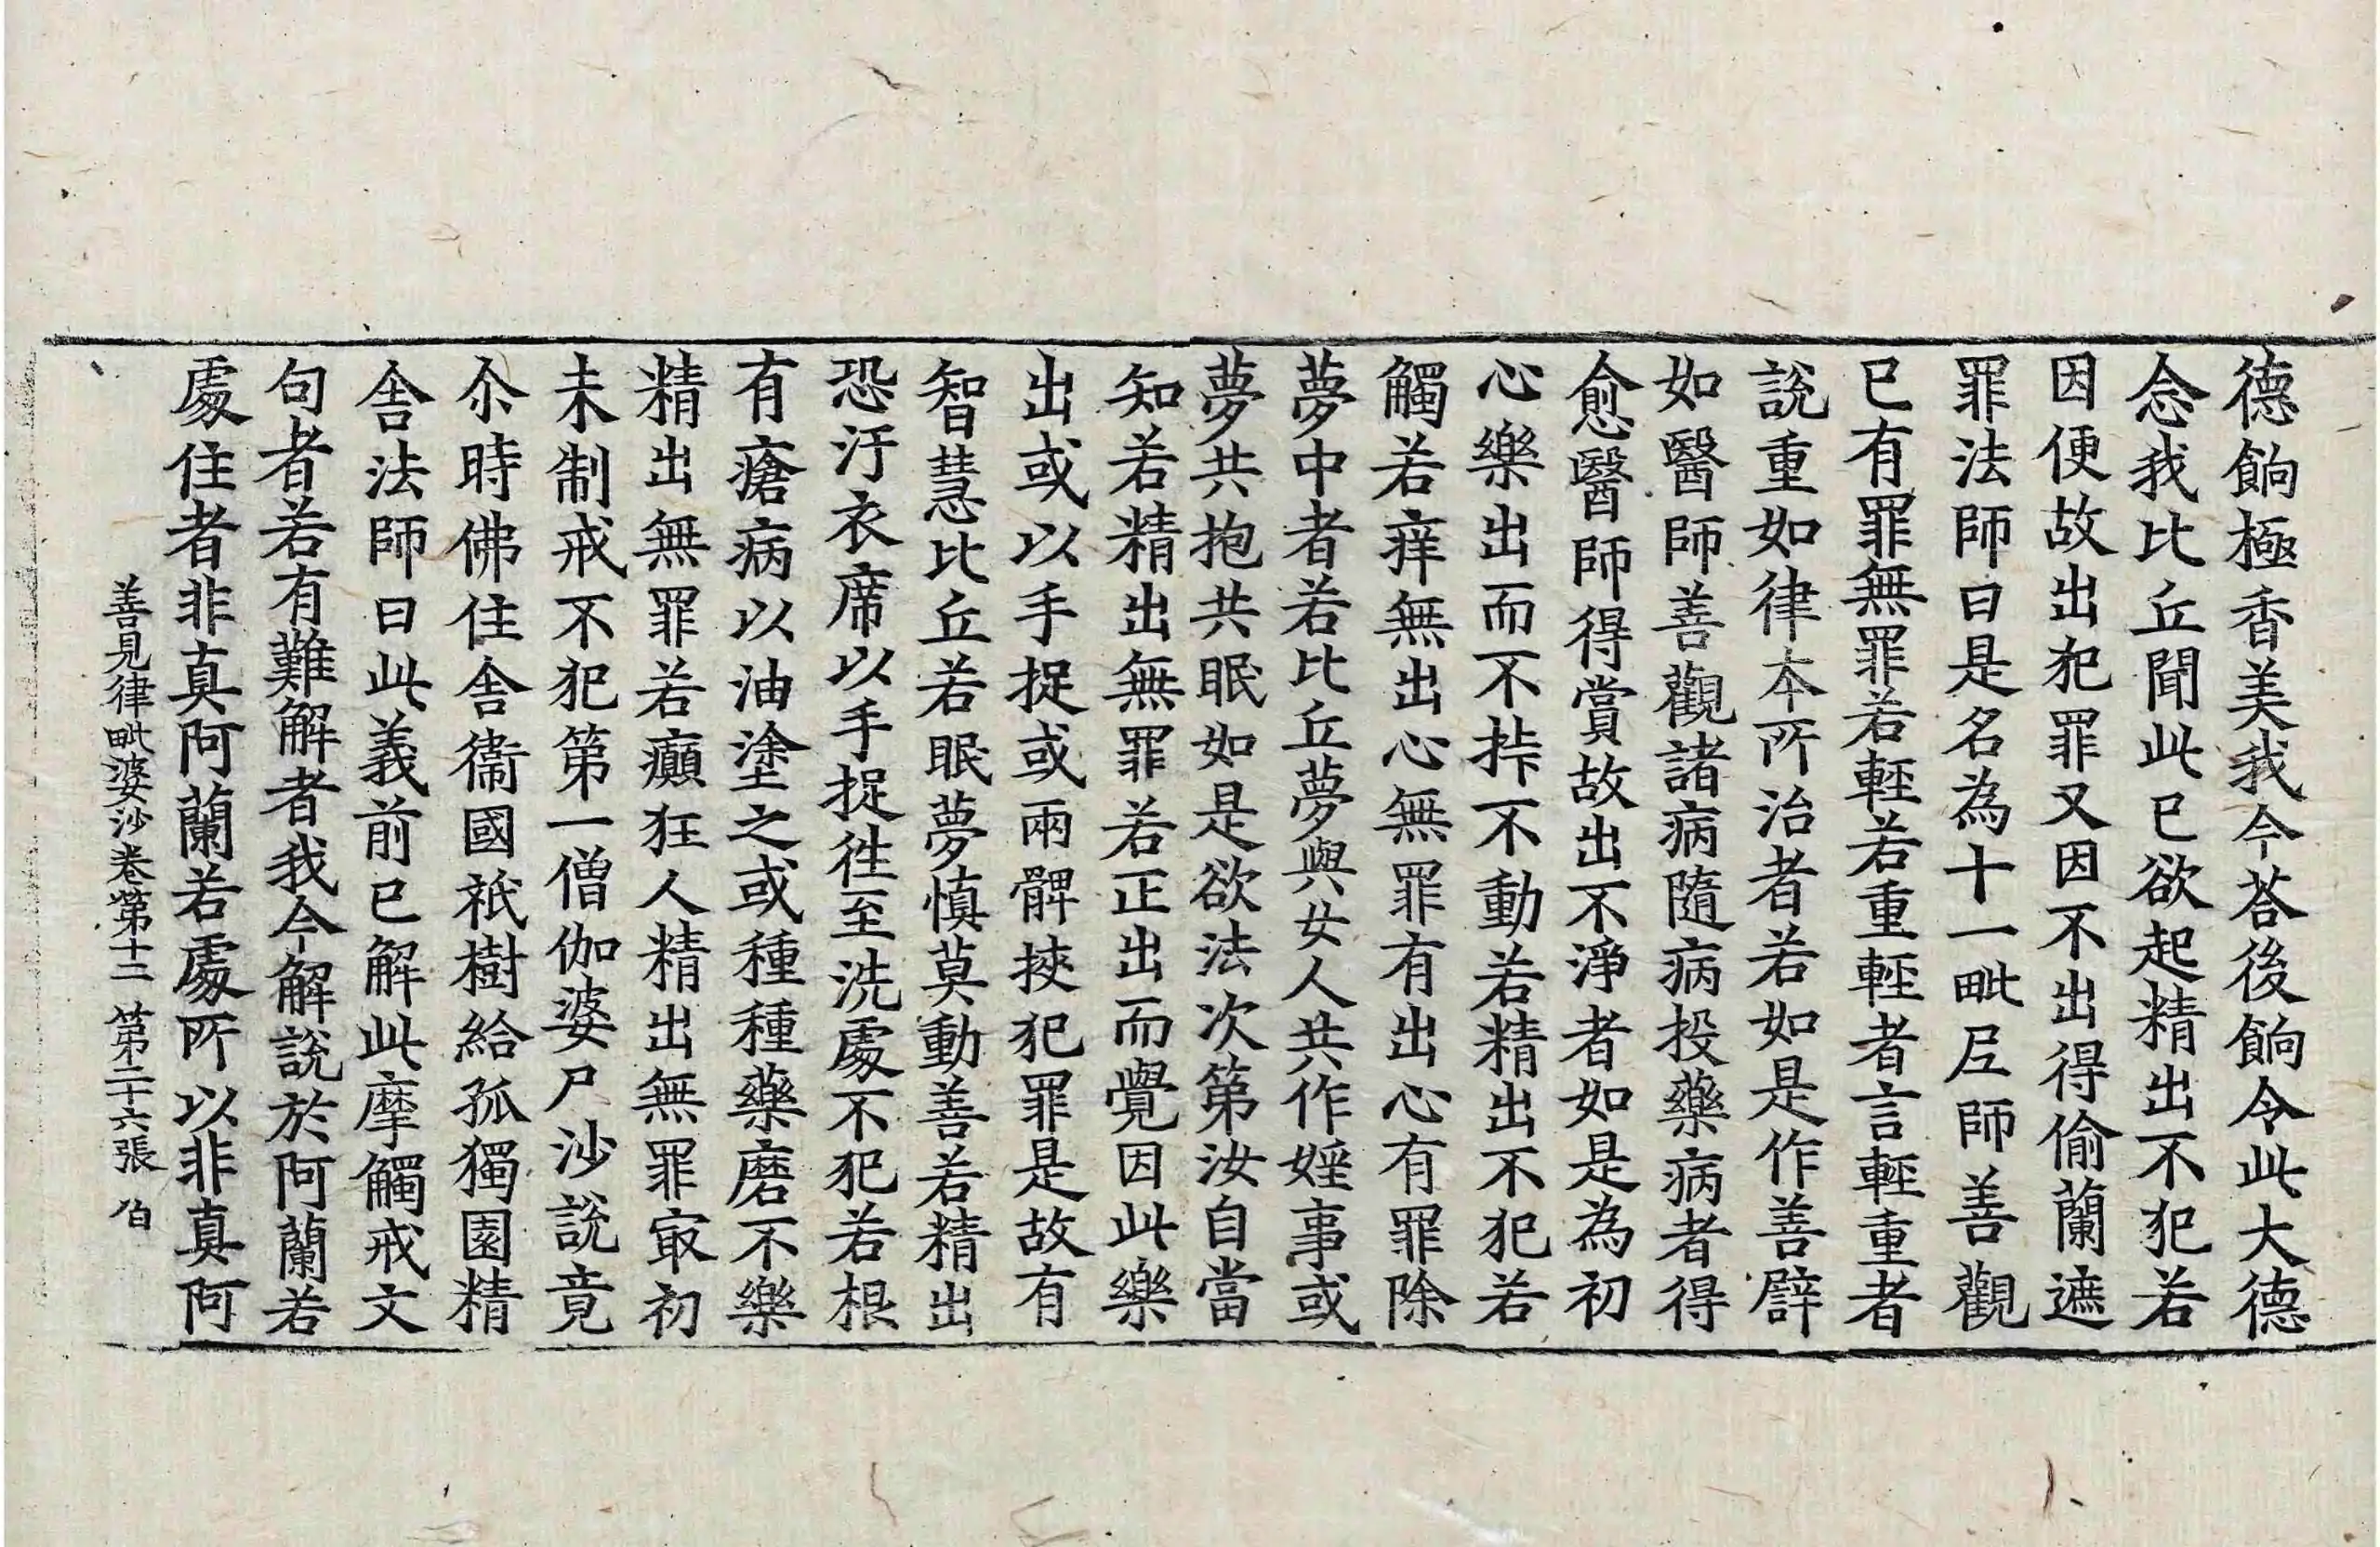 德餉極香美我今荅後餉令此大德
念我比丘聞此已欲起精出不犯若
因便故出犯罪又因不出得偷蘭遮
罪法師曰是名為十一毗𡰱師善觀
已有罪無罪若輕若重輕者言輕重者
說重如律本所治者若如是作善𤖝
如醫師善觀諸病隨病投藥病者得
愈醫師得賞故出不淨者如是為初
心樂出而不𢫾不動若精出不犯若
觸若痒無出心無罪有出心有罪除
夢中者若比丘夢與女人共作婬事或
夢共抱共眠如是欲法次第汝自當
知若精出無罪若正出而覺因此樂
出或以手捉或兩髀挾犯罪是故有
智慧比丘若眠夢慎莫動善若精出
恐汙衣席以手捉徃至洗處不犯若根
有瘡病以油塗之或種種藥磨不樂
精出無罪若癲狂人精出無罪㝡初
未制戒不犯第一僧伽婆尸沙說竟
尒時佛住舍衞國祇樹給孤獨園精
舍法師曰此義前已解此摩觸戒文
句者若有難解者我今解說於阿蘭若
處住者非真阿蘭若處所以非真阿
善見律毗婆沙卷第十二 第二十六張 伯